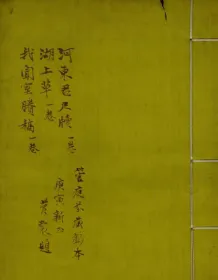 河東君尺牘一卷
湖上草一卷
我聞室賸稿一卷
藏副本
庚寅新
題